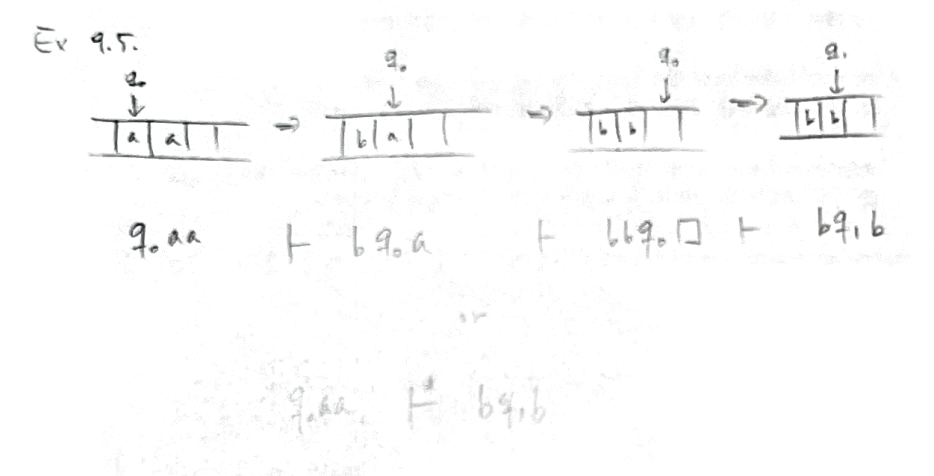 Ex 9.5.
q₀ q₀ q₀ q₁
↓ ↓ ↓ ↓
|a|a| | ⇒ |b|a| | ⇒ |b|b| | ⇒ |b|b| |
q₀aa ⊢ bq₀a ⊢ bbq₀□ ⊢ bq₁b
or
q₀aa ⊢* bq₁b